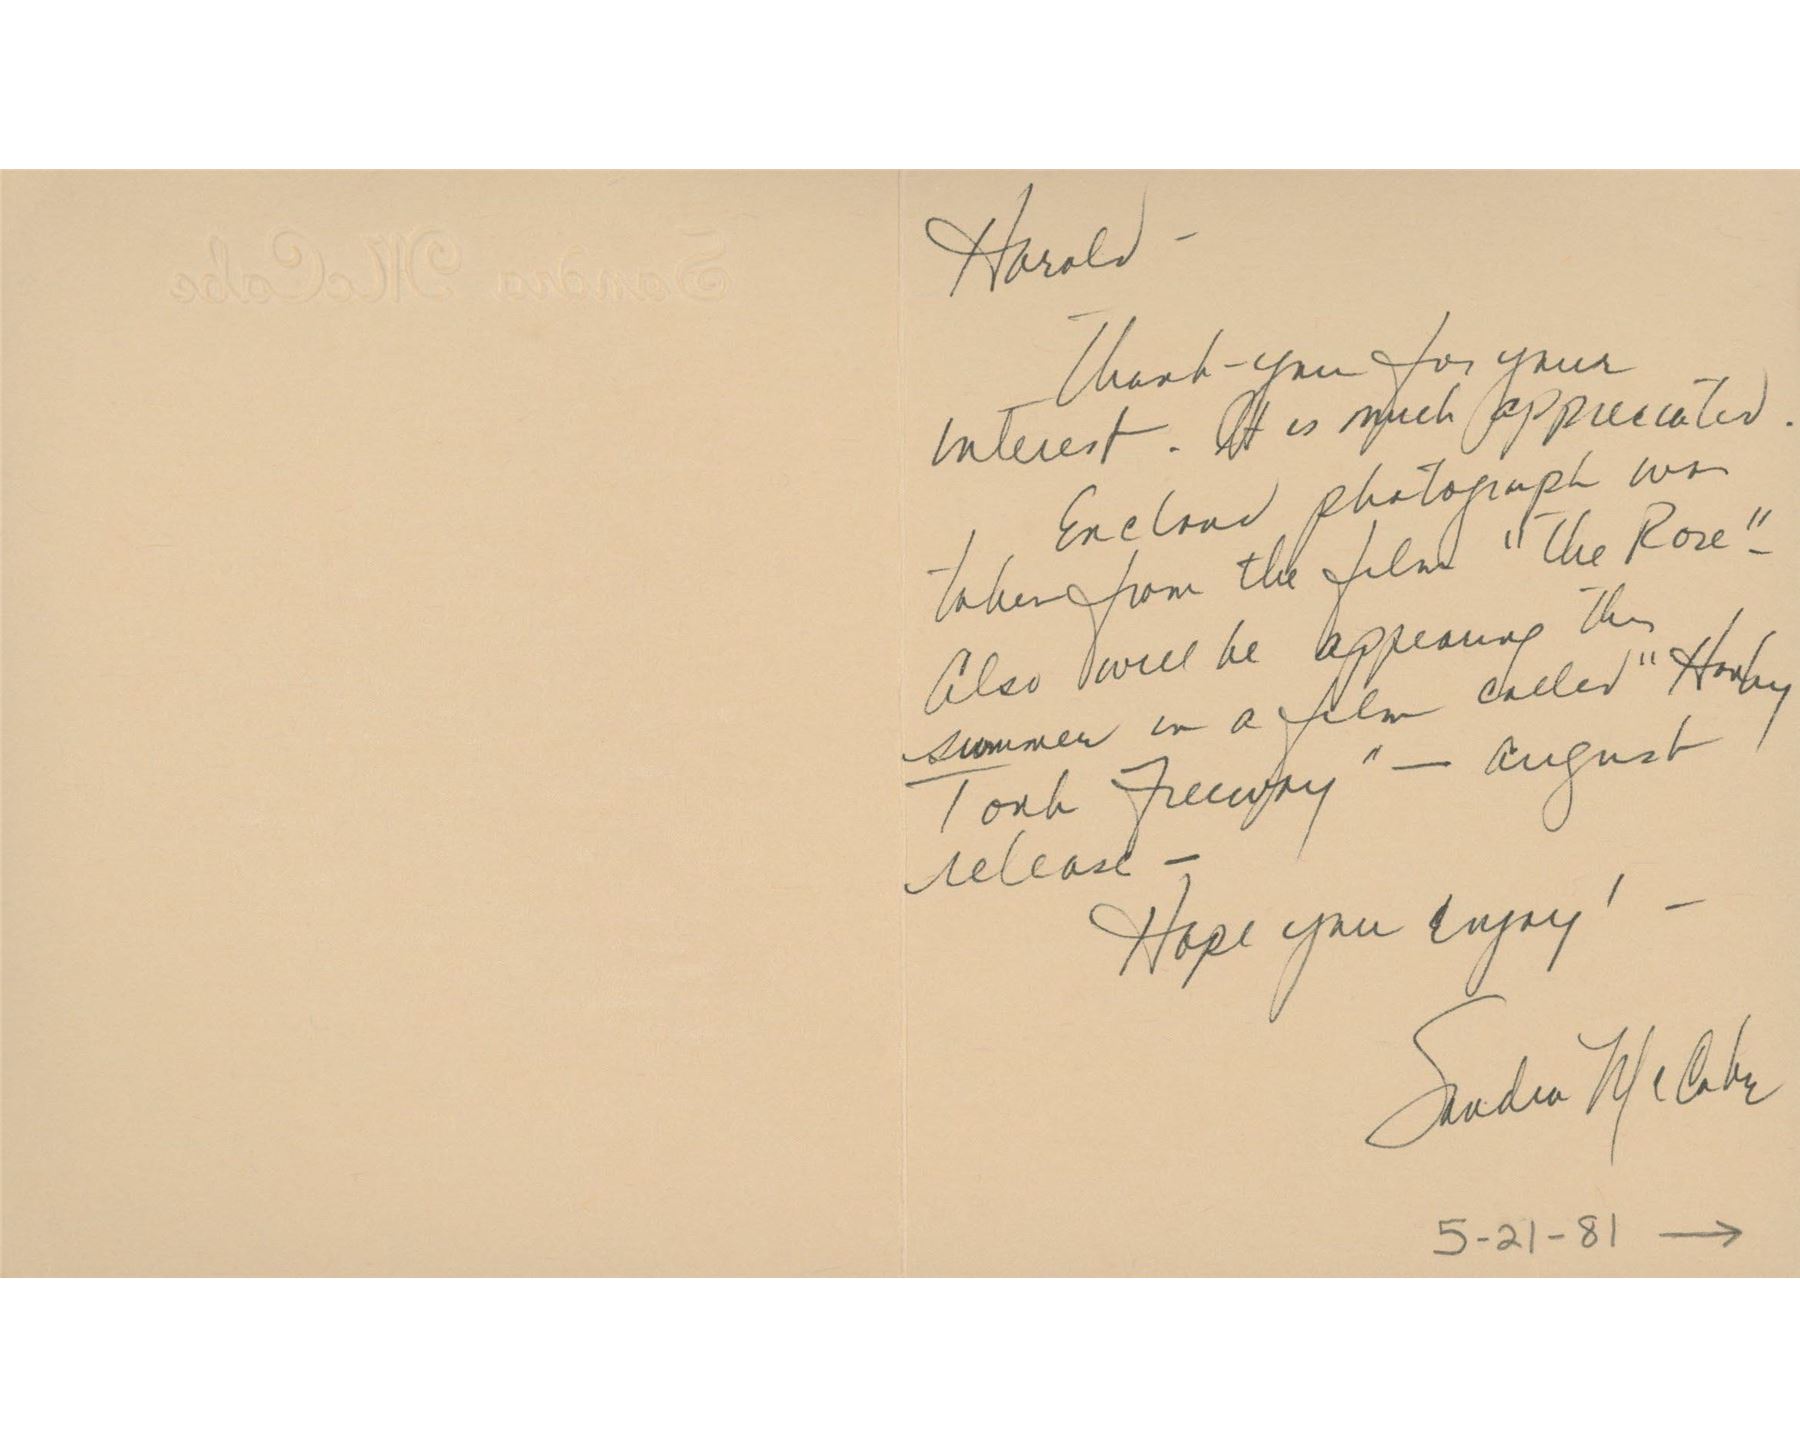 Sandra McCabe
Harold -
Thank-you for your
interest. It is much appreciated.
Enclosed photograph was
taken from the film "The Rose" -
Also will be appearing this
summer in a film called "Honky
Tonk Freeway" — August
release -
Hope you enjoy! -
Sandra McCabe
5-21-81 →